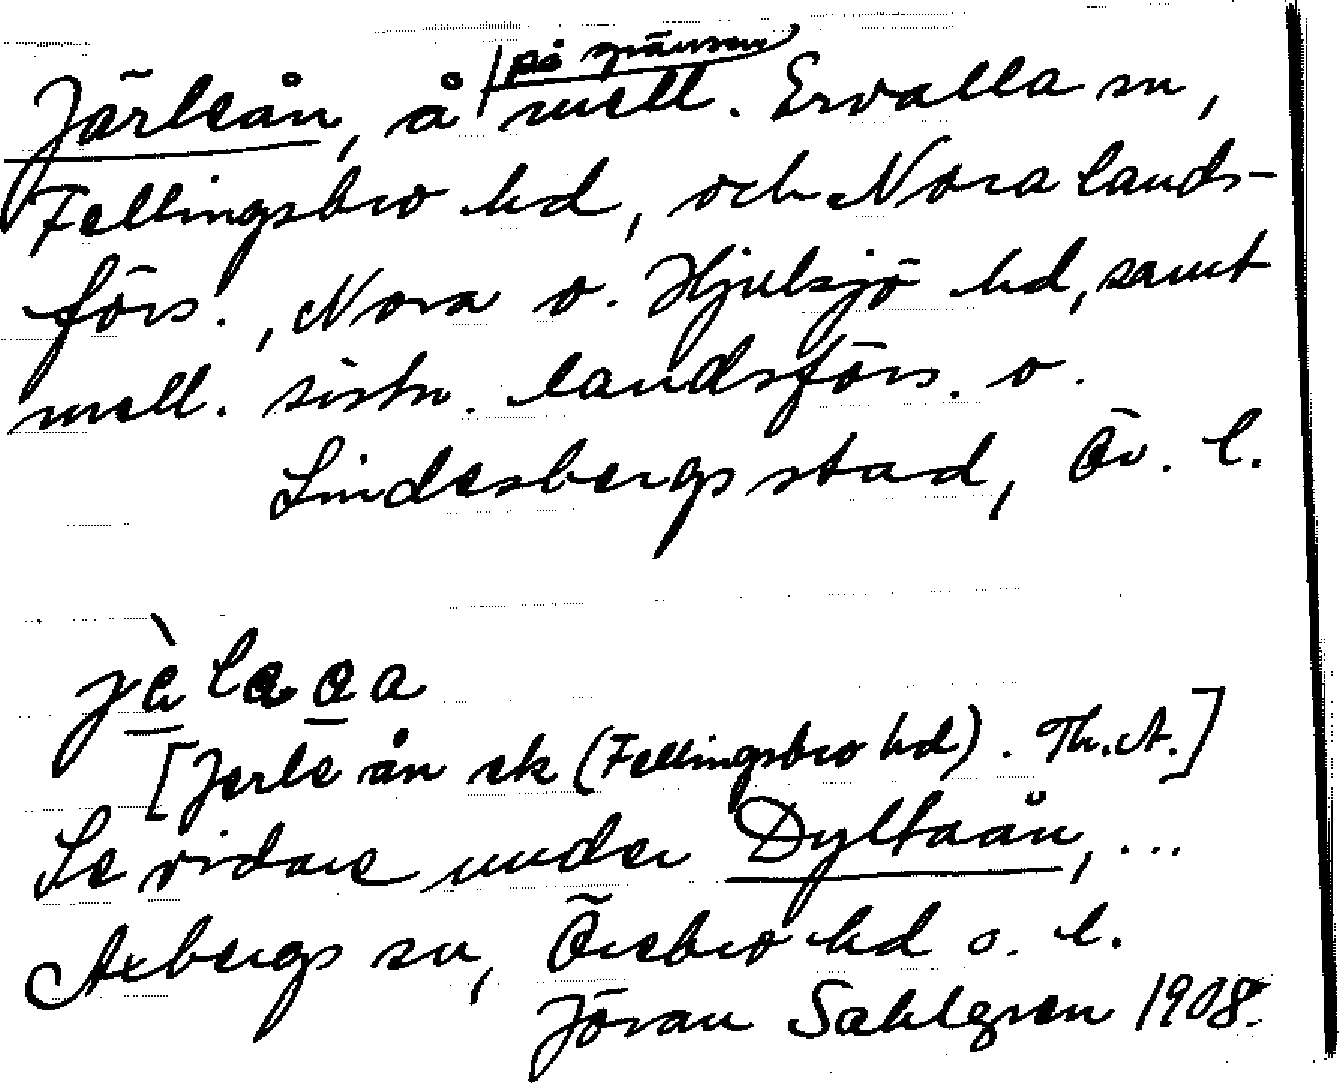 på gränsen
Järleån, å mell. Ervalla sn,
Fellingsbro hd, och Nora lands-
förs., Nora o. Hjulsjö hd, samt
mell. sistn. landsförs. o.
Lindesbergs stad, Ör. l.
[Jerle ån ek (Fellingsbro hd). Th. A.]
Se vidare under Dyltaån, ...
Axbergs sn, Örebro hd o. l.
Jöran Sahlgren 1908.